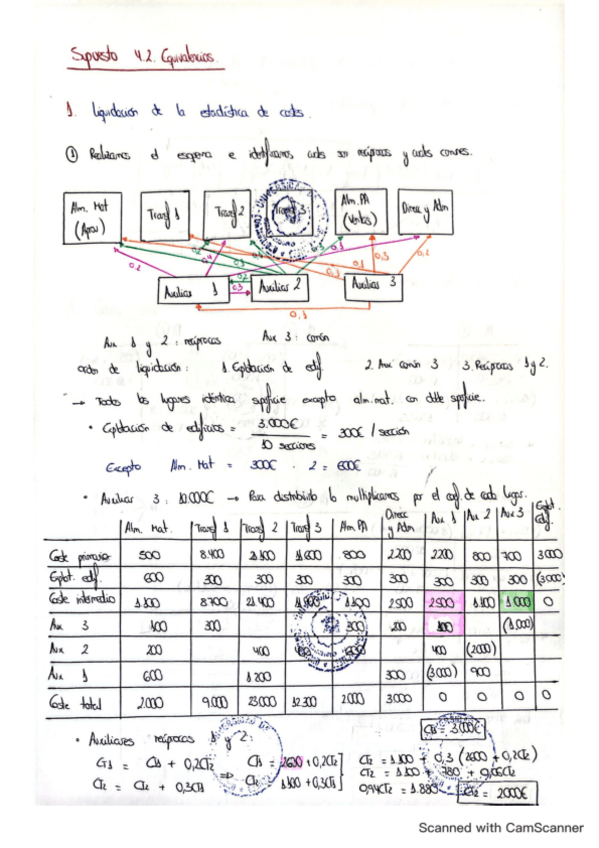 Supuesto 4.2. Equivalencias.
1. Liquidación de la estadística de costes.
① Realizamos el esquema e identificamos cuales son recíprocas y cuales comunes.
Alm. Mat (Aprov) Transf 1 Transf 2 Transf 3 Alm. PA (Ventas) Direcc y Adm
0,2 0,2 0,4 0,2 0,3 0,3 0,1 0,3 0,3 0,2
Auxiliar 1 Auxiliar 2 Auxiliar 3
0,1
Aux 1 y 2 : recíprocas Aux 3 : común
orden de liquidación: 1. Explotación de edif. 2. Aux común 3 3. Recíprocas 1 y 2.
→ Todos los lugares idéntica superficie excepto alm. mat. con doble superficie.
• Explotación de edificios = 3.000€ / 10 secciones = 300€ / sección
Excepto Alm. Mat = 300€ · 2 = 600€
• Auxiliar 3 : 10.000€ → Para distribuirlo lo multiplicamos por el coef. de cada lugar.
Alm. Mat. Transf 1 Transf 2 Transf 3 Alm. PA Direcc y Adm Aux 1 Aux 2 Aux 3 Explot. edif.
Coste primario 500 8.400 21.100 11.600 800 2.200 2200 800 700 3.000
Explot. edif. 600 300 300 300 300 300 300 300 300 (3.000)
Coste intermedio 1.100 8.700 21.400 11.900 1.100 2.500 2.500 1.100 1.000 0
Aux 3 100 300 300 200 100 (1.000)
Aux 2 200 400 400 600 400 (2000)
Aux 1 600 1.200 300 (3.000) 900
Coste total 2.000 9.000 23.000 12.300 2.000 3.000 0 0 0 0
• Auxiliares recíprocas 1 y 2: Ct1 = 3.000€
Ct1 = Ci1 + 0,2Ct2 ⇒ Ct1 = 2600 + 0,2Ct2 Ct2 = 1.100 + 0,3 (2600 + 0,2Ct2)
Ct2 = Ci2 + 0,3Ct1 Ct2 = 1.100 + 0,3Ct1 Ct2 = 1.100 + 780 + 0,06Ct2
0,94Ct2 = 1.880 Ct2 = 2000€
Scanned with CamScanner